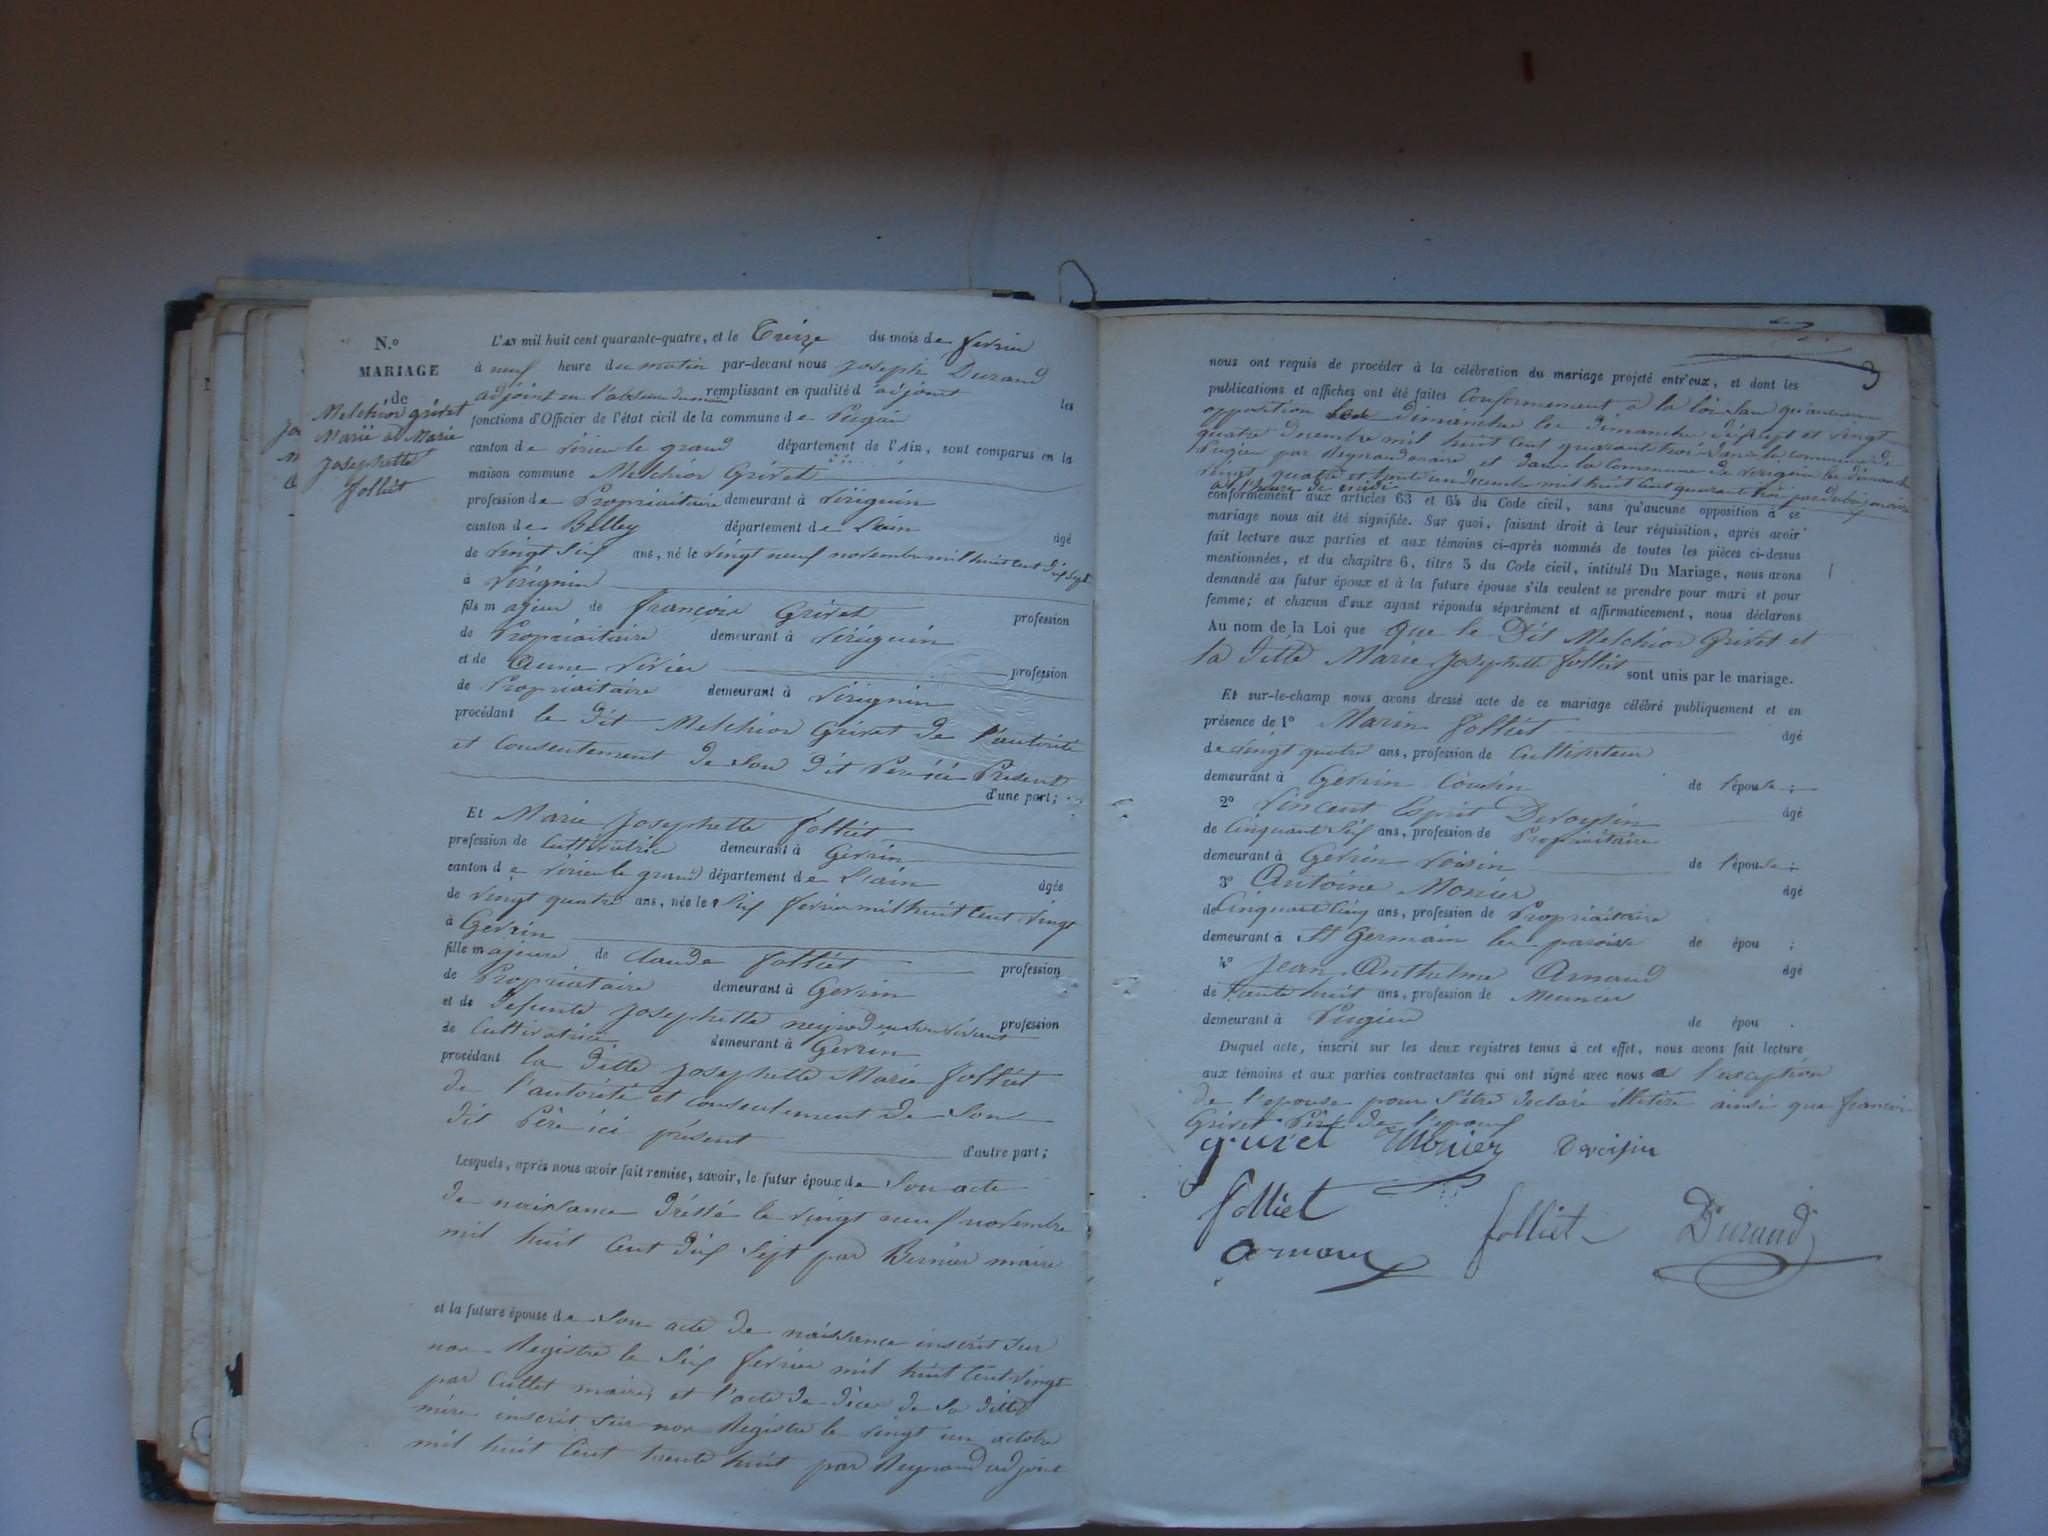 N.o
MARIAGE
de
Melchior grivet
Marié à Marie
Josephette
folliet
L'AN mil huit cent quarante-quatre, et le Treize du mois de fevrier
à neuf heure du matin par-devant nous Joseph Durand
adjoint en l'absence du maire remplissant en qualité d adjoint les
fonctions d'Officier de l'état civil de la commune de Pugieu
canton de Virieu le grand département de l'Ain, sont comparus en la
maison commune Melchior Grivet
profession de Propriaitaire demeurant à Virignin
canton de Belley département de L'ain âgé
de vingt six ans, né le vingt neuf novembre mil huit cent dix sept
à Virignin
fils majeur de françois Grivet profession
de Propriaitaire demeurant à Virignin
et de Anne Vivier profession
de Propriaitaire demeurant à Virignin
procédant le dit Melchior Grivet de l'autorité
et consentement de son dit Père ici Present
d'une part;
Et Marie Josephette folliet
profession de Cultivatrice demeurant à Gevrin
canton de Virieu le grand département de L'ain âgée
de vingt quatre ans, née le Six fevrier mil huit cent vingt
à Gevrin
fille majeure de Claude folliet profession
de Propriaitaire demeurant à Gevrin
et de defunte Josephette neyrod en son vivant profession
de Cultivatrice demeurant à Gevrin
procédant la ditte Josephette Marie folliet
de l'autorité et consentement de son
dit Père ici présent d'autre part;
Lesquels, après nous avoir fait remise, savoir, le futur époux de son acte
de naissance dréssé le vingt neuf novembre
mil huit cent dix sept par Bernier maire
et la future épouse de son acte de naissance inscrit sur
nos Registre le six fevrier mil huit cent vingt
par Cullet maire, et l'acte de déces de sa ditte
mère inscrit sur nos Registre le vingt un octobre
mil huit cent trente huit par Reynaud adjoint
3
nous ont requis de procéder à la célébration du mariage projeté entr'eux, et dont les
publications et affiches ont été faites Conformement à la loi sans qu'aucune
opposition dimanche les dimanche dixsept et vingt
quatre decembre mil huit cent quarante trois dans la commune de
Pugieu par Reynaud maire et dans la Commune de Virignin les dimanche
vingt quatre et trente un decembre mil huit cent quarante trois par dubois maire
à l'heure de midi
conformément aux articles 63 et 64 du Code civil, sans qu'aucune opposition à ce
mariage nous ait été signifiée. Sur quoi, faisant droit à leur réquisition, après avoir
fait lecture aux parties et aux témoins ci-après nommés de toutes les pièces ci-dessus
mentionnées, et du chapitre 6, titre 5 du Code civil, intitulé Du Mariage, nous avons
demandé au futur époux et à la future épouse s'ils veulent se prendre pour mari et pour
femme; et chacun d'eux ayant répondu séparément et affirmativement, nous déclarons
Au nom de la Loi que que le Dit Melchior Grivet et
la ditte Marie Josephette folliet sont unis par le mariage.
Et sur-le-champ nous avons dressé acte de ce mariage célébré publiquement et en
présence de 1o Marin folliet âgé
de vingt quatre ans, profession de Cultivateur
demeurant à Gevrin Cousin de l'épouse;
2o Vincent Esprit Devoysin âgé
de Cinquante Six ans, profession de Propriaitaire
demeurant à Gevrin voisin de l'épouse;
3o Antoine Monier âgé
de Cinquante Cinq ans, profession de Propriaitaire
demeurant à St Germain les paroisse de épou ;
4o Jean Anthelme Arnaud âgé
de trente huit ans, profession de Meunier
demeurant à Pugieu de épou .
Duquel acte, inscrit sur les deux registres tenus à cet effet, nous avons fait lecture
aux témoins et aux parties contractantes qui ont signé avec nous a l'exception
de l'epouse pour s'être declaré illitéré ainsi que francois
Grivet Père de l'epoux
grivet Monier Devoisin
folliet folliet Durand
Arnaud